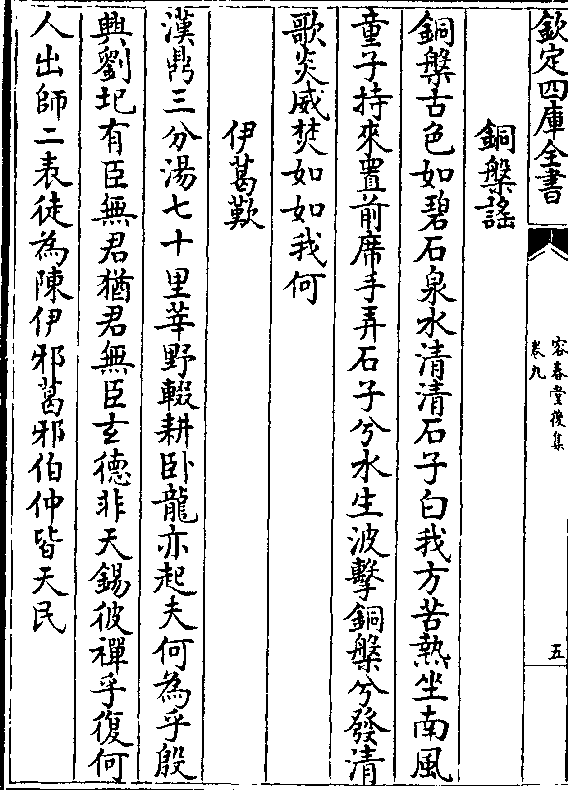 欽定四庫全書
容春堂後集
卷九
五
銅槃謡
銅槃古色如碧石泉水清清石子白我方苦熱坐南風
童子持來置前席手弄石子兮水生波擊銅槃兮發清
歌炎威焚如如我何
伊葛歎
漢鼎三分湯七十里莘野輟耕卧龍亦起夫何為乎殷
興劉圮有臣無君猶君無臣玄德非天錫彼禪乎復何
人出師二表徒為陳伊邪葛邪伯仲皆天民